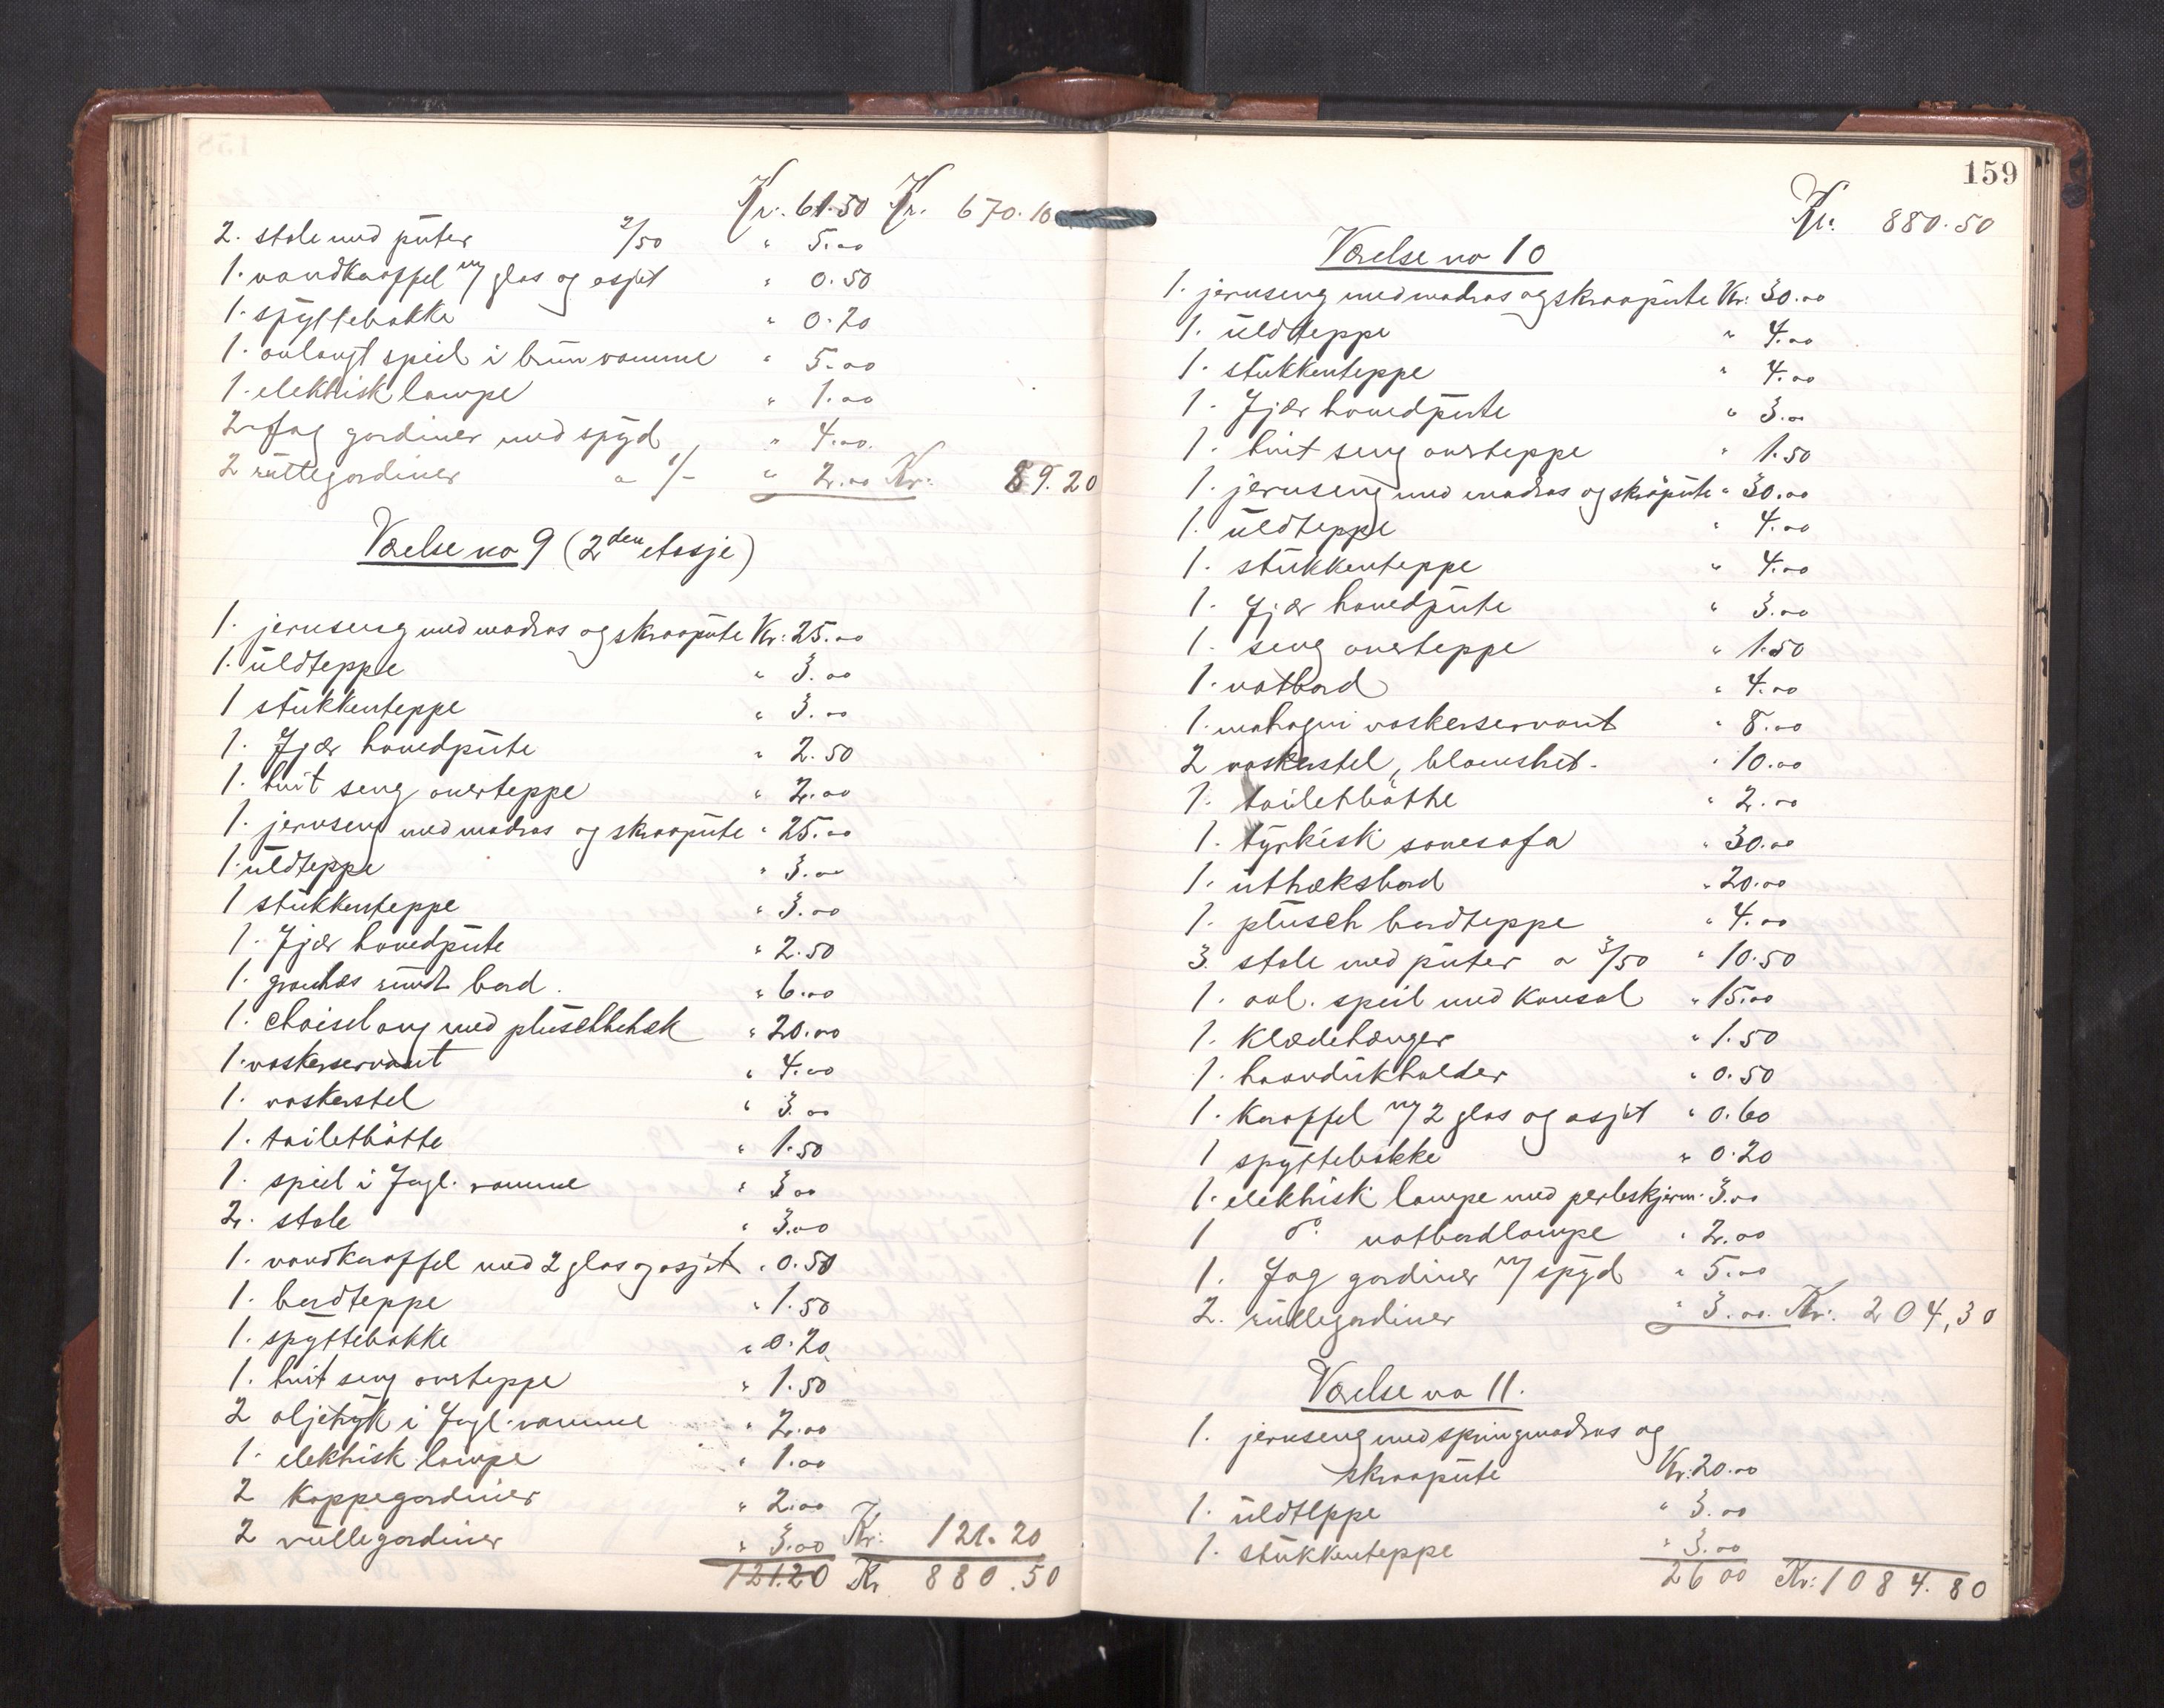 Kr. 61.50 Kr. 670.10
2. stole med püter 2/50 " 5.00
1. vandkaraffel m/ glas og asjet " 0.50
1. spyttebakke " 0.20
1. avlangt speil i brün ramme " 5.00
1. elektrisk lampe " 1.00
2 fag gardiner med spyd " 4.00.
2 rüllegardiner a 1/- " 2.00 Kr: 89.20
Værelse no 9 (2den etasje)
1. jernseng med madras og skraapüte Kr: 25.00
1. üldteppe " 3.00
1 stükkenteppe " 3.00
1. Fjær hovedpüte " 2.50
1. hvit seng overteppe " 2.00
1. jernseng med madras og skraapüte " 25.00
1. üldteppe " 3.00
1 stükkenteppe " 3.00
1. Fjær hovedpüte " 2.50
1. ründt bord. " 6.00
1. chaiselong med plüschbetræk " 20.00
1. vaskeservant " 4.00
1. vaskestel " 3.00
1. toiletbøtte " 1.50
1. speil i Forgl. ramme " 3.00
2. stole " 3.00
1. vandkaraffel med 2 glas og asjet " 0.50
1. bordteppe " 1.50
1. spyttebakke " 0.20
1. hvit seng overteppe " 1.50
2 oljetryk i Forgl. ramme " 2.00
1. elektrisk lampe " 1.00
2 kappegardiner " 2.00
2 rüllegardiner " 3.00 Kr: 121.20
121.20 Kr 880.50
159
Kr. 880.50
Værelse no 10
1. jernseng med madras og skraapüte Kr: 30.00
1. üldteppe " 4.00
1. stükkenteppe " 4.00
1. Fjær hovedpüte " 3.00
1. hvit seng overteppe " 1.50
1. jernseng med madras og skråpüte " 30.00
1. üldteppe " 4.00
1. stükkenteppe " 4.00
1. Fjær hovedpüte " 3.00
1. seng overteppe " 1.50
1. natbord " 4.00
1. mahogni vaskeservant " 8.00
2 vaskestel, blomstret. " 10.00
1. toiletbøtte " 2.00
1. tyrkisk sovesofa " 30.00
1. üttræksbord " 20.00
1. plüsch bordteppe " 4.00
3. stole med püter a 3/50 " 10.50
1. avl. speil med konsol " 15.00
1. klædehænger " 1.50
1. haandükholder " 0.50
1. karaffel m/ 2 glas og asjet " 0.60
1 spyttebakke " 0.20
1. elektrisk lampe med perleskjerm " 3.00
1 do. natbordlampe " 2.00
1. Fag gardiner m/ spyd " 5.00
2. rüllegardiner " 3.00. Kr: 204,30
Værelse no 11.
1. jernseng med springmadras og
skraapüte Kr: 20.00
1. üldteppe " 3.00
1. stükkenteppe " 3.00
26 00 Kr: 1084.80